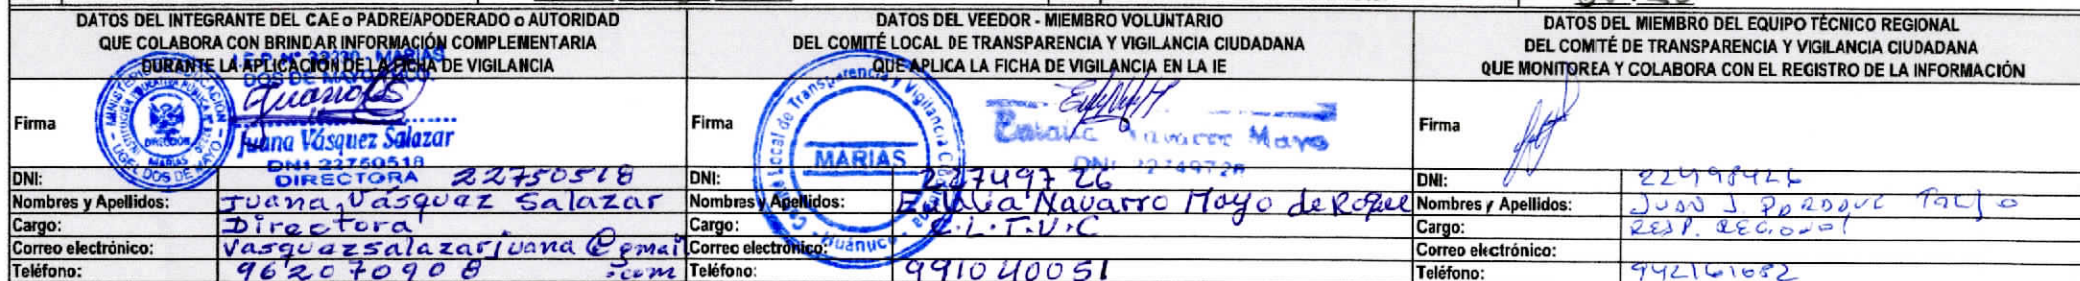 DATOS DEL INTEGRANTE DEL CAE o PADRE/APODERADO o AUTORIDAD
QUE COLABORA CON BRINDAR INFORMACIÓN COMPLEMENTARIA
DURANTE LA APLICACIÓN DE LA FICHA DE VIGILANCIA
I.E.P. N° MARIAS
DOS DE MAYO
MINISTERIO DE EDUCACIÓN
DIRECCION
MARIAS
UGEL DOS DE MAYO
Firma
Juana Vásquez Salazar
DNI 22750518
DIRECTORA
DNI: 22750518
Nombres y Apellidos: Juana Vásquez Salazar
Cargo: Directora
Correo electrónico: Vasquezsalazarjuana@gmail
.com
Teléfono: 962070908
DATOS DEL VEEDOR - MIEMBRO VOLUNTARIO
DEL COMITÉ LOCAL DE TRANSPARENCIA Y VIGILANCIA CIUDADANA
QUE APLICA LA FICHA DE VIGILANCIA EN LA IE
Local de Transparencia y Vigilancia
MARIAS
Huánuco
Firma
Eulalia Navarro Mayo
DNI 22749726
DNI: 22749726
Nombres y Apellidos: Eulalia Navarro Mayo de Roque
Cargo: C.L.T.V.C
Correo electrónico:
Teléfono: 991040051
DATOS DEL MIEMBRO DEL EQUIPO TÉCNICO REGIONAL
DEL COMITÉ DE TRANSPARENCIA Y VIGILANCIA CIUDADANA
QUE MONITOREA Y COLABORA CON EL REGISTRO DE LA INFORMACIÓN
Firma
DNI: 22498426
Nombres y Apellidos: Juan J.
Cargo: RESP. REGIONAL
Correo electrónico:
Teléfono: 942161682